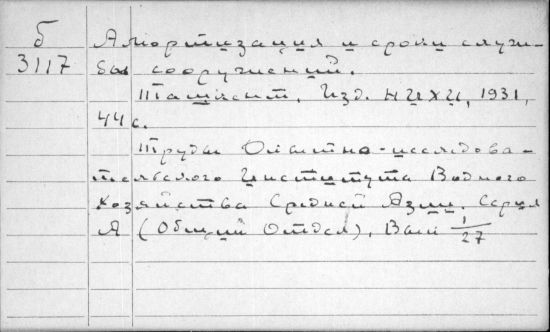 Б
3117
Амортизация и сроки служ-
бы сооружений.
Ташкент, Изд. НИХИ, 1931,
44 с.
Труды Опытно-исследова-
тельского Института Водного
Хозяйства Средней Азии. Серия
А (Общий Отдел), Вып 1/27